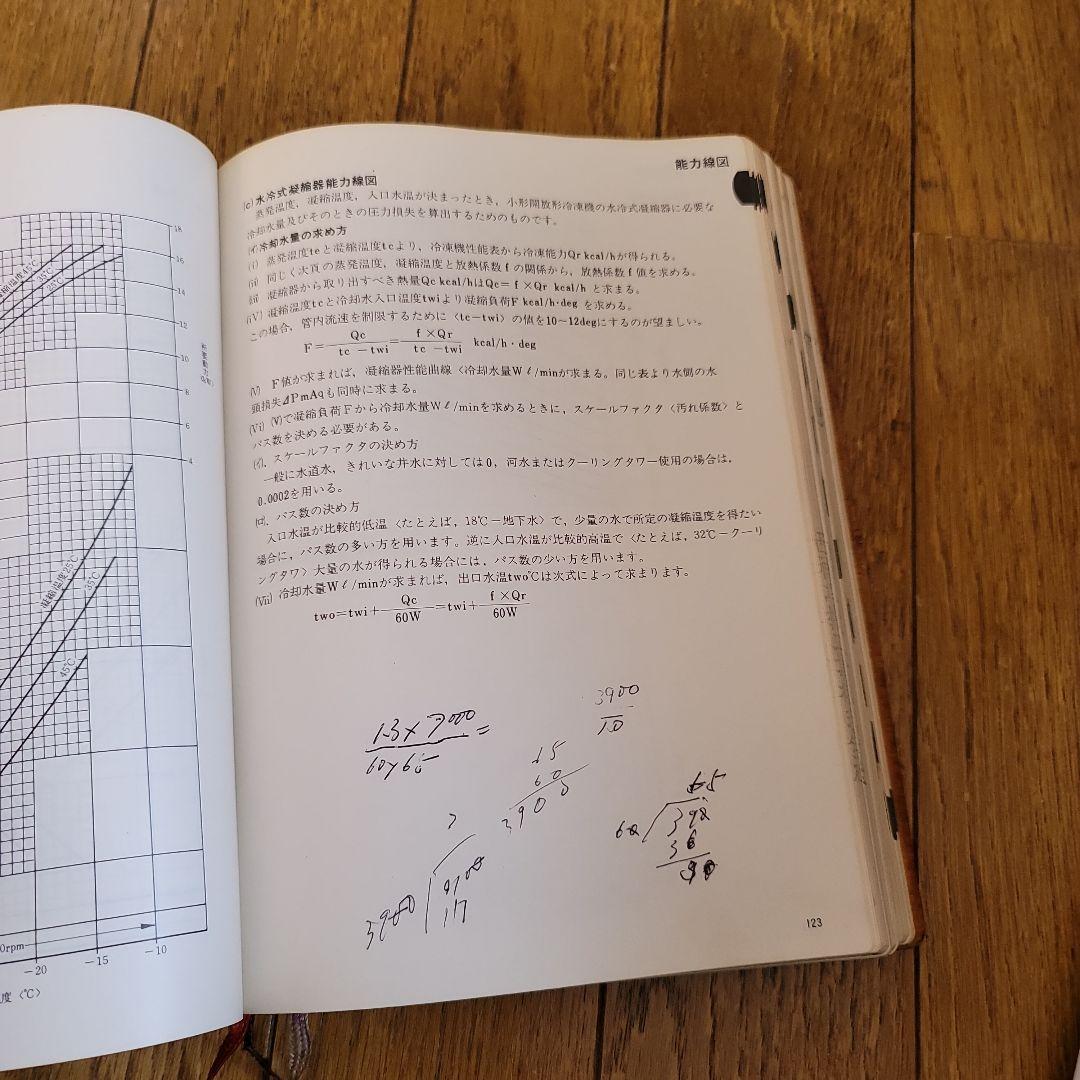 能力線図
(c)水冷式凝縮器能力線図
蒸発温度，凝縮温度，入口水温が決まったとき，小形開放形冷凍機の水冷式凝縮器に必要な
冷却水量及びそのときの圧力損失を算出するためのものです。
(イ)冷却水量の求め方
(i) 蒸発温度teと凝縮温度tcより，冷凍機性能表から冷凍能力Qr kcal/hが得られる。
(ii) 同じく次頁の蒸発温度，凝縮温度と放熱係数fの関係から，放熱係数f値を求める。
(iii) 凝縮器から取り出すべき熱量Qc kcal/hはQc= f ×Qr kcal/h と求まる。
(iV) 凝縮温度tcと冷却水入口温度twiより凝縮負荷F kcal/h·deg を求める。
この場合，管内流速を制限するために〈tc−twi〉の値を10~12degにするのが望ましい。
F= Qc / tc −twi = f ×Qr / tc −twi kcal/h·deg
(V) F値が求まれば，凝縮器性能曲線〈冷却水量Wℓ/minが求まる。同じ表より水側の水
頭損失⊿PmAqも同時に求まる。
(Vi) (V)で凝縮負荷Fから冷却水量Wℓ/minを求めるときに，スケールファクタ〈汚れ係数〉と
パス数を決める必要がある。
(イ)．スケールファクタの決め方
一般に水道水，きれいな井水に対しては0，河水またはクーリングタワー使用の場合は，
0.0002を用いる。
(ロ)．パス数の決め方
入口水温が比較的低温〈たとえば，18℃−地下水〉で，少量の水で所定の凝縮温度を得たい
場合に，パス数の多い方を用います。逆に入口水温が比較的高温で〈たとえば，32℃−クーリ
ングタワ〉大量の水が得られる場合には，パス数の少い方を用います。
(Vii) 冷却水量Wℓ/minが求まれば，出口水温two℃は次式によって求まります。
two=twi+ Qc / 60W =twi+ f ×Qr / 60W
1.3×7000 / 60×65 =
65
60
3900
3900
10
65
3900
9100
117
123
18
16
14
12
10
8
6
4
35℃
25℃
凝縮温度25℃
35℃
45℃
0rpm
−20
−15
−10
度〈℃〉